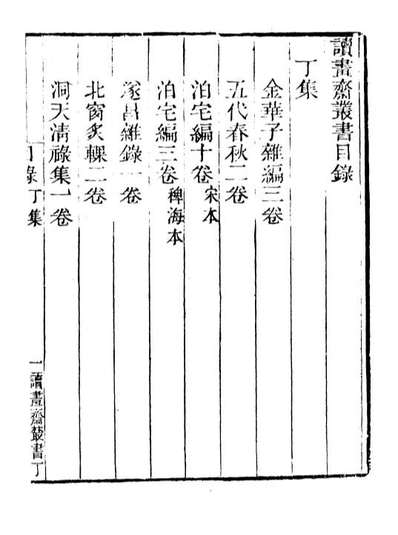 讀畫齋叢書目錄
丁集
金華子雜編三卷
五代春秋二卷
泊宅編十卷宋本
泊宅編三卷稗海本
遂昌雜錄一卷
北窗炙輠二卷
洞天清祿集一卷
目錄丁集 一 讀畫齋叢書丁